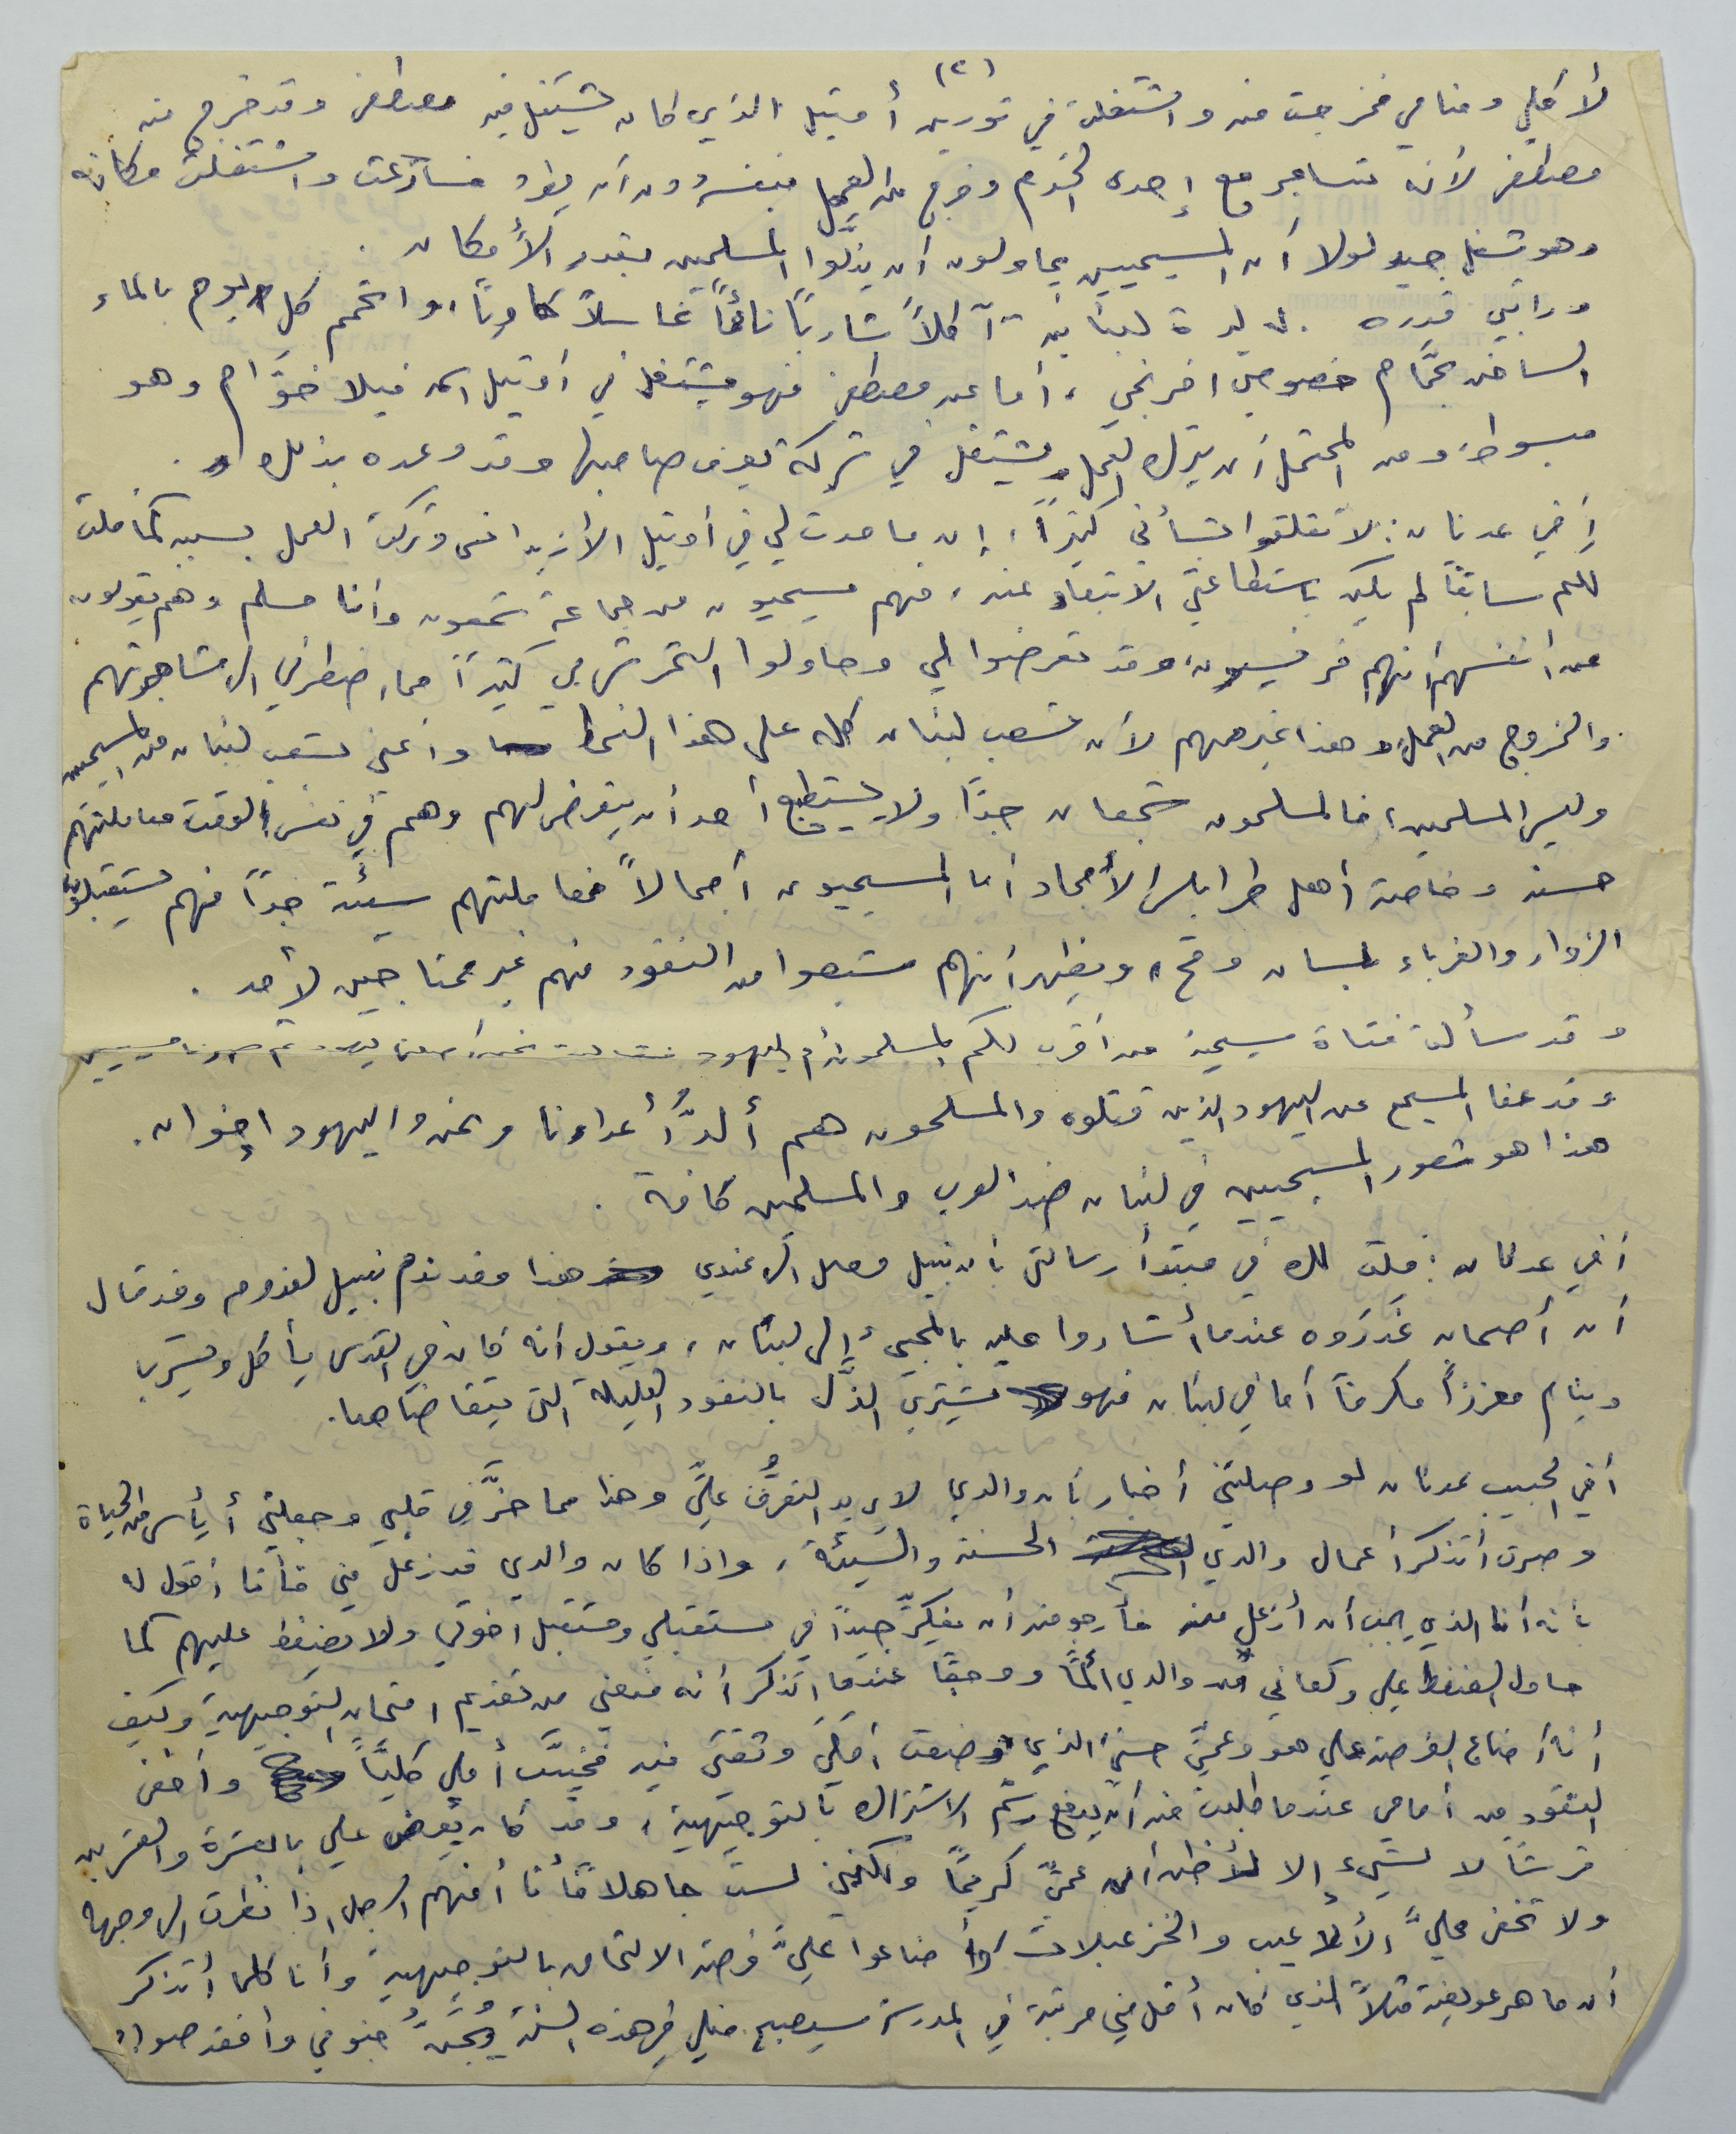 (٢)
لأكلي ومنامي فخرجت منه واشتغلت في تورينج أوتيل الذي كان يشتغل فيه مصطفى وقد خرج منه
مصطفى لأنه تشاجر مع إحدى الخدم وخرج من العمل بنفسه دون أن يطرد فسارعت واشتغلت مكانه
وهو شغل جيد لولا أن المسيحيين يحاولون أن يذلّوا المسلمين بقدر الأمكان .
وراتبي قدره ليرة لبنانية آكلاً شارباً نائماً غاسلاً كاوياً، واتحمم كل يوم بالماء
الساخن بحمَّام خصوصي افرنجي ، أما عن مصطفى فهو يشتغل في أوتيل اسمه فيلا خوَّام وهو
مبسوط ومن المحتمل أن يترك العمل ويشتغل في شركة يعرف صاحبها وقد وعده بذلك .
إخي عدنان : لا تقلقوا بشأني كثيراً ، إن ما حدث لي في أوتيل الأنزيد انني وتركت العمل بسببه كما قلت
لكم سابقاً لم يكن باستطاعتي الابتعاد عنه ، فهم مسيحيون من جماعة شمعون وأنا مسلم وهم يقولون
عن أنفسهم أنهم فرنسيون، وقد تعرضوا لي وحاولوا التحرش بي كثيراً مما اضطرني الى مشاجرتهم
والخروج من العمل، وهذا غير مهم لأن شعب لبنان كله على هذا النمط وأعني شعب لبنان من المسيحيين
وليس المسلمين ، فالمسلمون شجعان جداً ولا يستطيع أحد أن يتعرض لهم وهم في نفس الوقت معاملتهم
حسنه وخاصة أهل طرابلس الأمجاد أما المسيحيون أجمالاً فمعاملتهم سيئة جداً فهم يستقبلون
الزوار والغرباء بلسان وقح، ويظهر أنهم شبعوا من النقود فهم غير محتاجين لأحد .
وقد سألت فتاة مسيحية من أقرب لكم المسلمون أم اليهود فقالت نحن أصلنا يهود ثم صرنا مسيحيين
وقد عفا المسيح عن اليهود الذين قتلوه والمسلمون هم ألدُّ أعداءنا ونحن واليهود إخوان .
هذا هو شعور المسيحيين في لبنان ضد العرب والمسلمين كافة .
أخي عدنان : قلت لك في مبتدأ رسالتي بأن نبيل وصل الى عندي هذا وقد ندم نبيل لقدومه وقد قال
أن أصحابه غدروه عندما أشاروا عليه بالمجيء إلى لبنان ، ويقول أنه كان في القدس يأكل ويشرب
وينام معززاً مكرماً أما في لبنان فهو يشتري الذل بالنقود القليلة التي يتقاضاها .
أخي الحبيب عدنان لقد وصلتني أخبار بأن والدي لا يريد التعرُّف عليَّ وهذا مما حزَّ في قلبي وجعلني أيأس من الحياة
وصرت أتذكر أعمال والدي الحسنة والسيئة ، واذا كان والدي قد زعل مني فأنا أقول له
بأنه أنا الذي يجب أن أزعل منه فأرجو منه أن يفكر جيداً في مستقبلي ومستقبل اخوتي ولا يضغط عليهم كما
حاول الضغط علي وكفاني من والدي ألماً ووجعاً عندما اتذكر أنه منعني من تقديم امتحان التوجيهية وكيف
أنه أضاع الفرصة علي هو وعمّي حسني الذي وضعت أملي وثقتي فيه فخيَّب أملي كليَّاً وأخفى
النقود من أمامي عندما طلبت منه أن يدفع رسم الاشتراك بالتوجيهية ، وقد كان يعرض علي بالعشرة والعشرين
قرشاً لا لشيء إلا لأظن أن عمّي كريماً ولكنني لست جاهلا فأنا أفهم الرجل إذا نظرت الى وجهه
ولا تخفى عليَّ الألاعيب والخزعبلات أضاعوا عليَّ فرصة الالتحاق بالتوجيهية وأنا كلما أتذكر
أن ماهر عويضة مثلاً الذي كان أقل مني مرتبة في المدرسة سيصبح مثلي في هذه السنة يُجَنُّ جنوني وأفقد صوابي